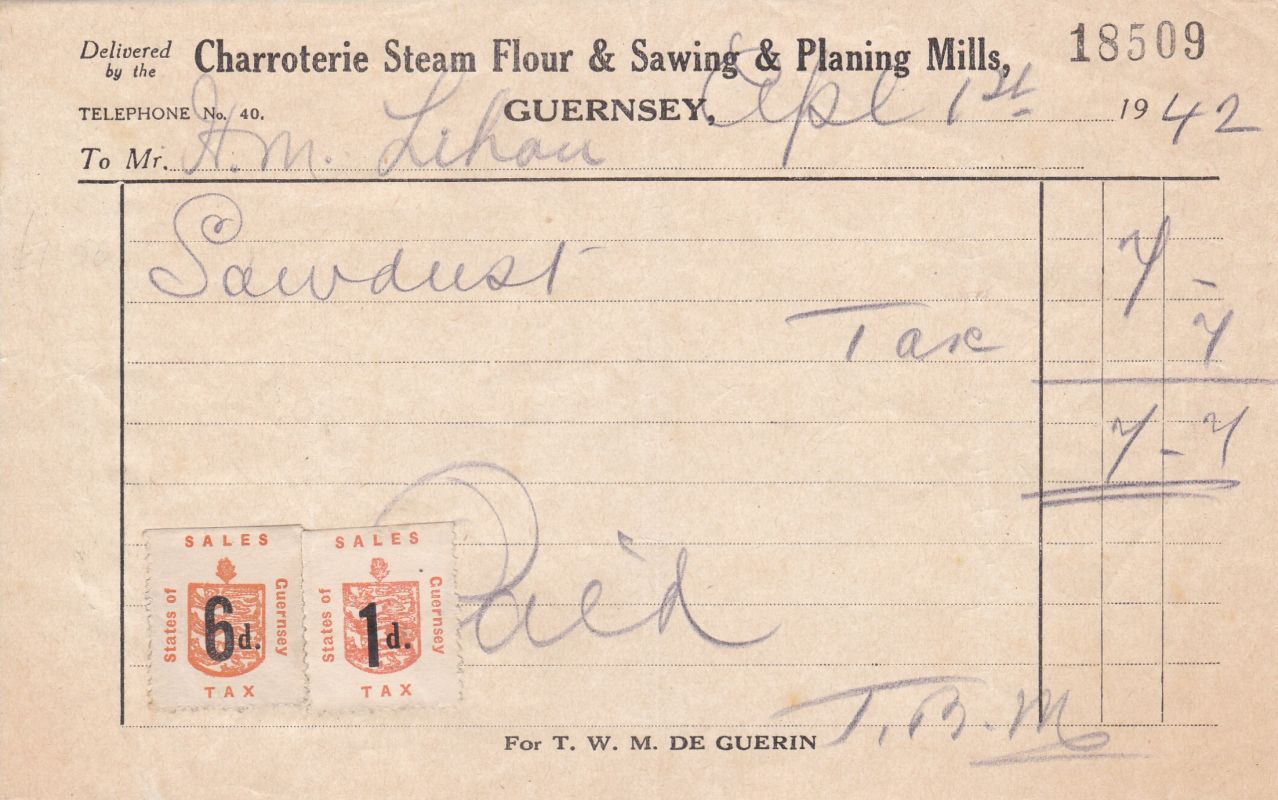 Delivered by the Charroterie Steam Flour & Sawing & Planing Mills, 18509
TELEPHONE No. 40. GUERNSEY, Apl 1st 1942
To Mr. H. M. Lihou
Sawdust 7 -
Tax 7
7 - 7
SALES SALES
States of 6d. Guernsey States of 1d. Guernsey
TAX TAX
Paid
For T. W. M. DE GUERIN T. B. M